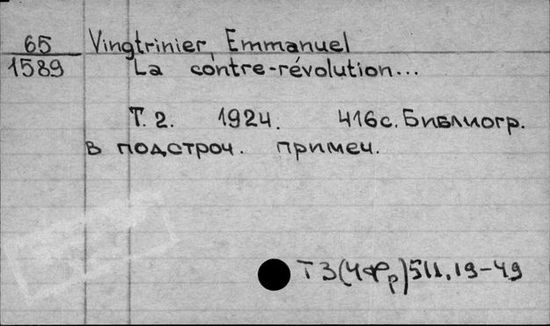 65 Vingtrinier, Emmanuel
1589 La contre-révolution...
Т. 2. 1924. 416с. Библиогр.
в подстроч. примеч.
Т3(4Фр)511.19-49